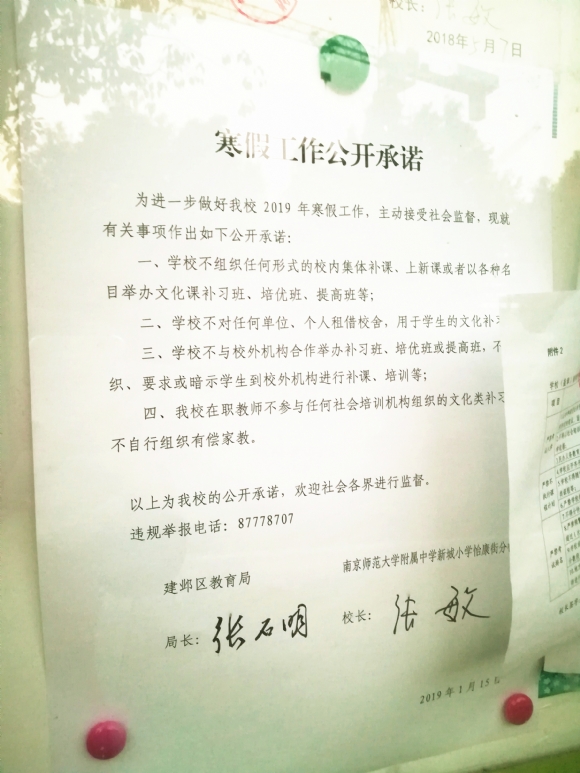 校长：张敏
2018年5月7日
寒假工作公开承诺
为进一步做好我校 2019 年寒假工作，主动接受社会监督，现就
有关事项作出如下公开承诺：
一、学校不组织任何形式的校内集体补课、上新课或者以各种名
目举办文化课补习班、培优班、提高班等；
二、学校不对任何单位、个人租借校舍，用于学生的文化补习
三、学校不与校外机构合作举办补习班、培优班或提高班，不
织、要求或暗示学生到校外机构进行补课、培训等；
四、我校在职教师不参与任何社会培训机构组织的文化类补习
不自行组织有偿家教。
以上为我校的公开承诺，欢迎社会各界进行监督。
违规举报电话：87778707
建邺区教育局
南京师范大学附属中学新城小学怡康街分
局长：张石明
校长：张敏
2019年1月15日
附件2